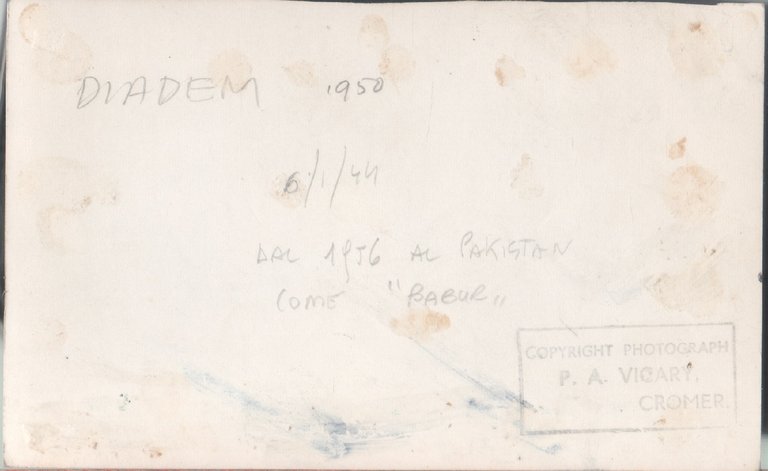 DIADEM 1950
6/1/44
DAL 1956 AL PAKISTAN
COME "BABUR"
COPYRIGHT PHOTOGRAPH
P. A. VICARY.
CROMER.